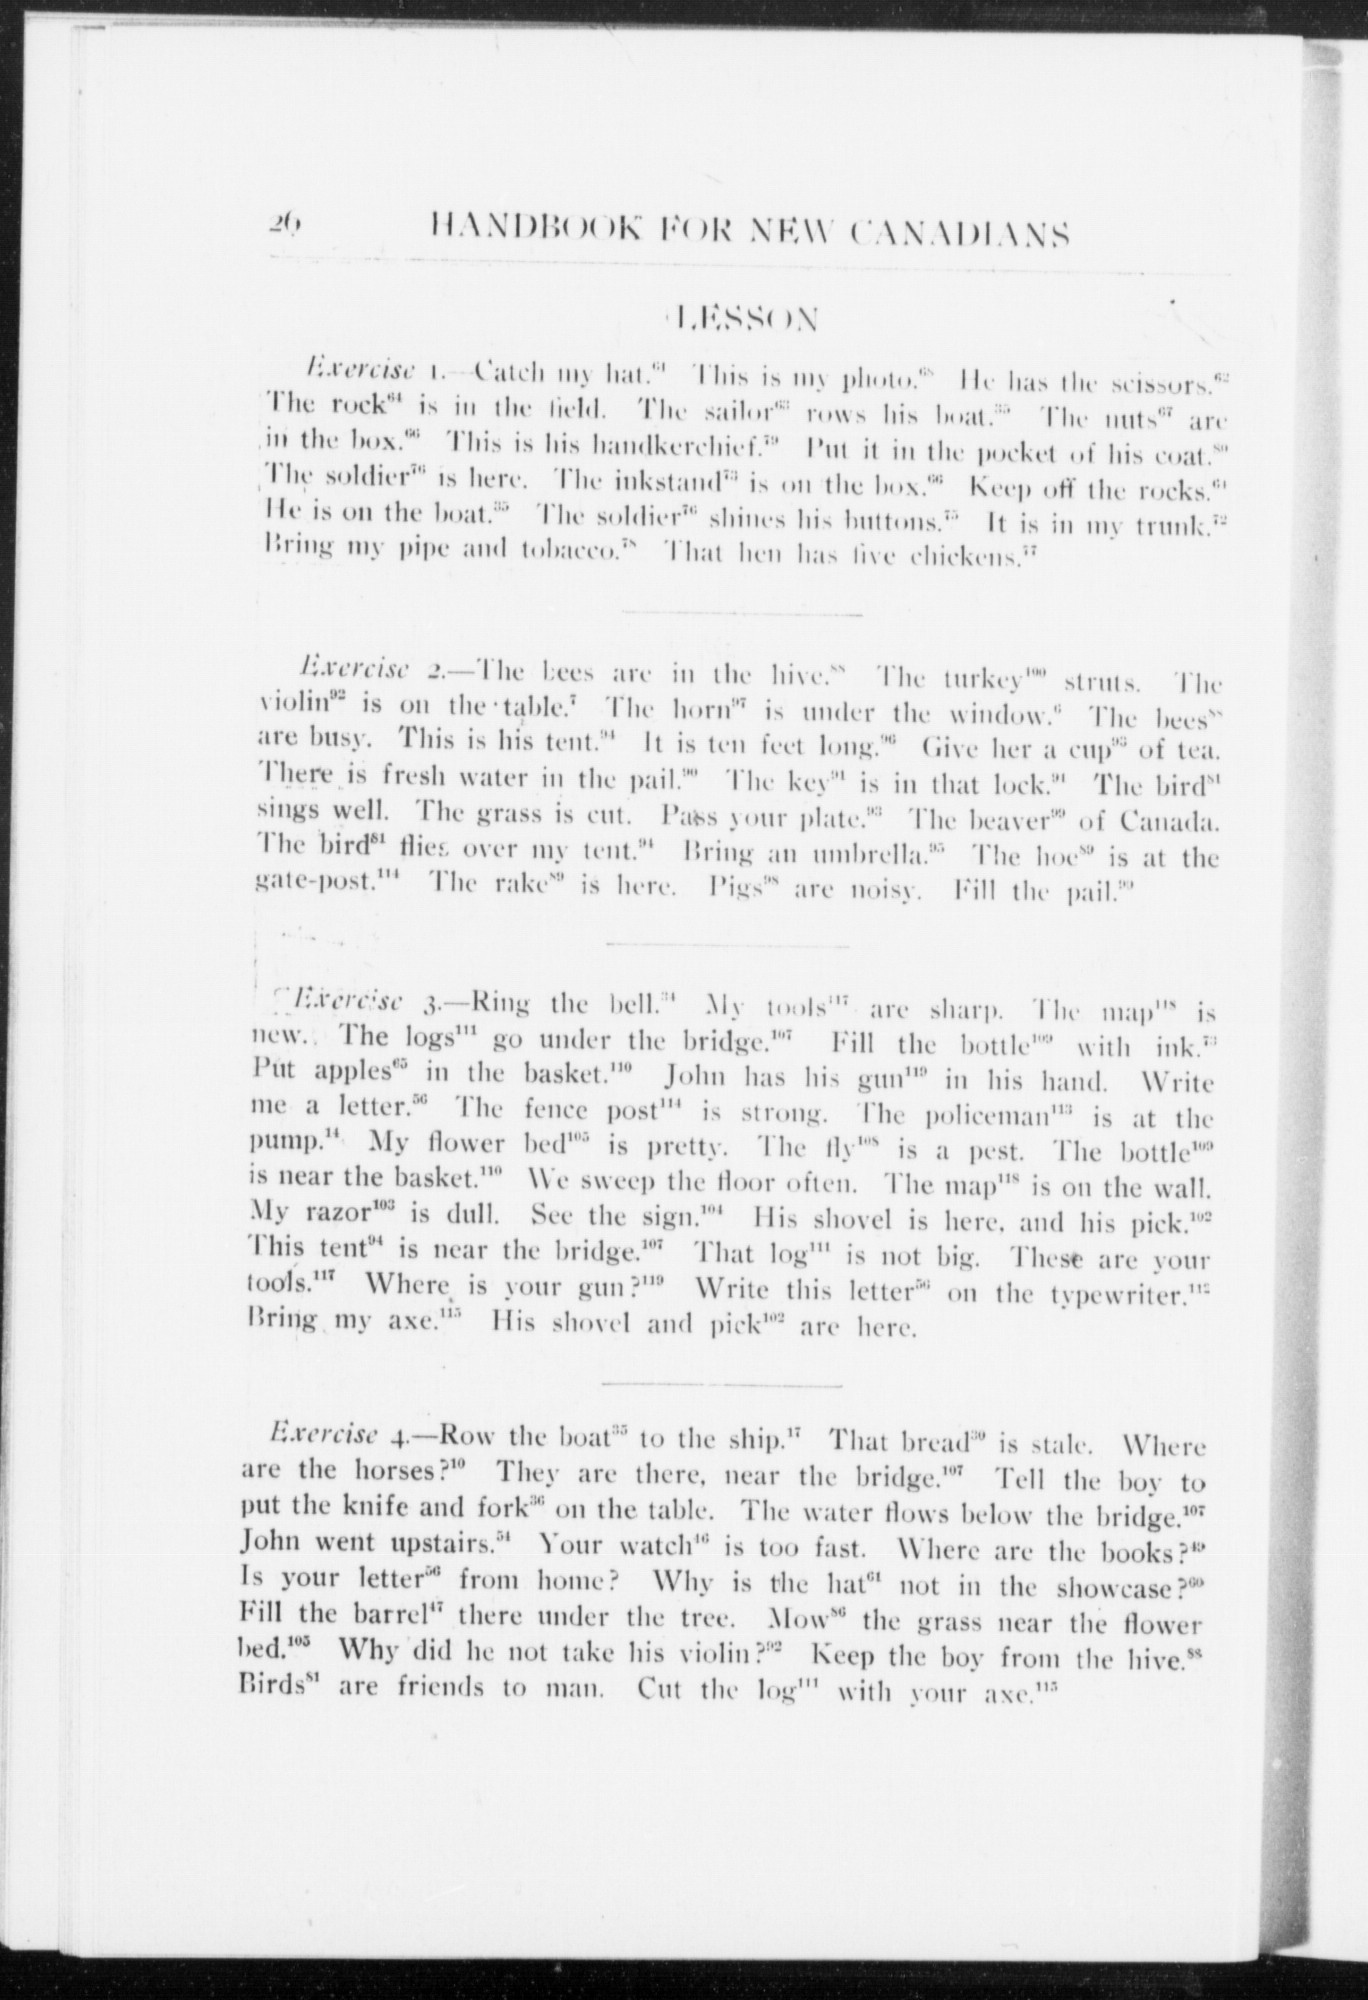 26 HANDBOOK FOR NEW CANADIANS
LESSON
Exercise 1.—Catch my hat.⁶¹ This is my photo.⁶⁸ He has the scissors.⁶²
The rock⁶⁴ is in the field. The sailor⁶³ rows his boat.³⁵ The nuts⁶⁷ are
in the box.⁶⁶ This is his handkerchief.⁷⁹ Put it in the pocket of his coat.⁸⁰
The soldier⁷⁶ is here. The inkstand⁷³ is on the box.⁶⁶ Keep off the rocks.⁶⁴
He is on the boat.³⁵ The soldier⁷⁶ shines his buttons.⁷⁵ It is in my trunk.⁷²
Bring my pipe and tobacco.⁷⁸ That hen has five chickens.⁷⁷
Exercise 2.—The bees are in the hive.⁸⁸ The turkey¹⁰⁰ struts. The
violin⁹² is on the table.⁷ The horn⁹⁷ is under the window.⁶ The bees⁸⁸
are busy. This is his tent.⁹⁴ It is ten feet long.⁹⁶ Give her a cup⁹³ of tea.
There is fresh water in the pail.⁹⁰ The key⁹¹ is in that lock.⁹¹ The bird⁸¹
sings well. The grass is cut. Pass your plate.⁹³ The beaver⁹⁹ of Canada.
The bird⁸¹ flies over my tent.⁹⁴ Bring an umbrella.⁹⁵ The hoe⁸⁹ is at the
gate-post.¹¹⁴ The rake⁸⁹ is here. Pigs⁹⁸ are noisy. Fill the pail.⁹⁰
Exercise 3.—Ring the bell.³⁴ My tools¹¹⁷ are sharp. The map¹¹⁸ is
new. The logs¹¹¹ go under the bridge.¹⁰⁷ Fill the bottle¹⁰⁹ with ink.⁷³
Put apples⁶⁵ in the basket.¹¹⁰ John has his gun¹¹⁹ in his hand. Write
me a letter.⁵⁶ The fence post¹¹⁴ is strong. The policeman¹¹³ is at the
pump.¹⁴ My flower bed¹⁰⁵ is pretty. The fly¹⁰⁸ is a pest. The bottle¹⁰⁹
is near the basket.¹¹⁰ We sweep the floor often. The map¹¹⁸ is on the wall.
My razor¹⁰³ is dull. See the sign.¹⁰⁴ His shovel is here, and his pick.¹⁰²
This tent⁹⁴ is near the bridge.¹⁰⁷ That log¹¹¹ is not big. These are your
tools.¹¹⁷ Where is your gun?¹¹⁹ Write this letter⁵⁶ on the typewriter.¹¹²
Bring my axe.¹¹⁵ His shovel and pick¹⁰² are here.
Exercise 4.—Row the boat³⁵ to the ship.¹⁷ That bread³⁰ is stale. Where
are the horses?¹⁰ They are there, near the bridge.¹⁰⁷ Tell the boy to
put the knife and fork³⁶ on the table. The water flows below the bridge.¹⁰⁷
John went upstairs.⁵⁴ Your watch⁴⁶ is too fast. Where are the books?⁴⁹
Is your letter⁵⁶ from home? Why is the hat⁶¹ not in the showcase?⁶⁰
Fill the barrel⁴⁷ there under the tree. Mow⁸⁶ the grass near the flower
bed.¹⁰⁵ Why did he not take his violin?⁹² Keep the boy from the hive.⁸⁸
Birds⁸¹ are friends to man. Cut the log¹¹¹ with your axe.¹¹⁵